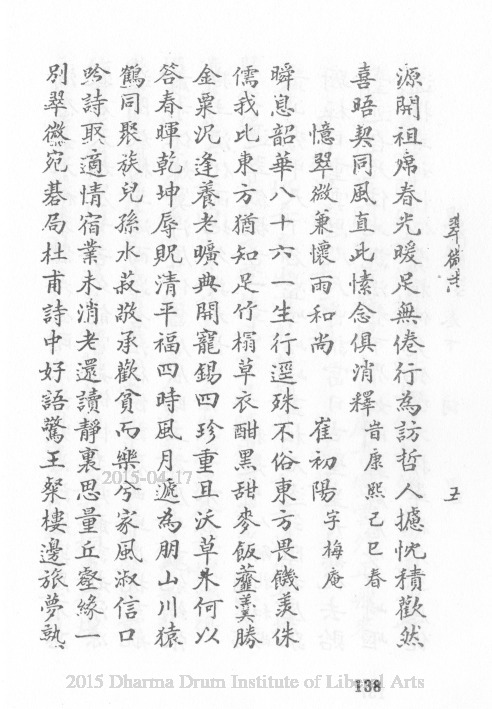 翠微志
五
源開祖席春光暖足無倦行為訪哲人攄忱積歡然
喜晤契同風直此愫念俱消釋 旹康熙己巳春
憶翠微兼懷雨和尚 崔初陽 字梅庵
瞬息韶華八十六一生行逕殊不俗東方畏饑羨侏
儒我此東方猶知足竹榻草衣酣黑甜麥飯虀羹勝
金粟沉逢養老曠典開寵錫四珍重且沃草木何以
答春暉乾坤辱貺清平福四時風月遞為朋山川猿
鶴同聚族兒孫水菽敬承歡貧而樂兮家風淑信口
吟詩取適情宿業未消老還讀靜裏思量丘壑緣一
別翠微宛碁局杜甫詩中好語驚王粲樓邊旅夢孰
2015-04-17
138
2015 Dharma Drum Institute of Liberal Arts